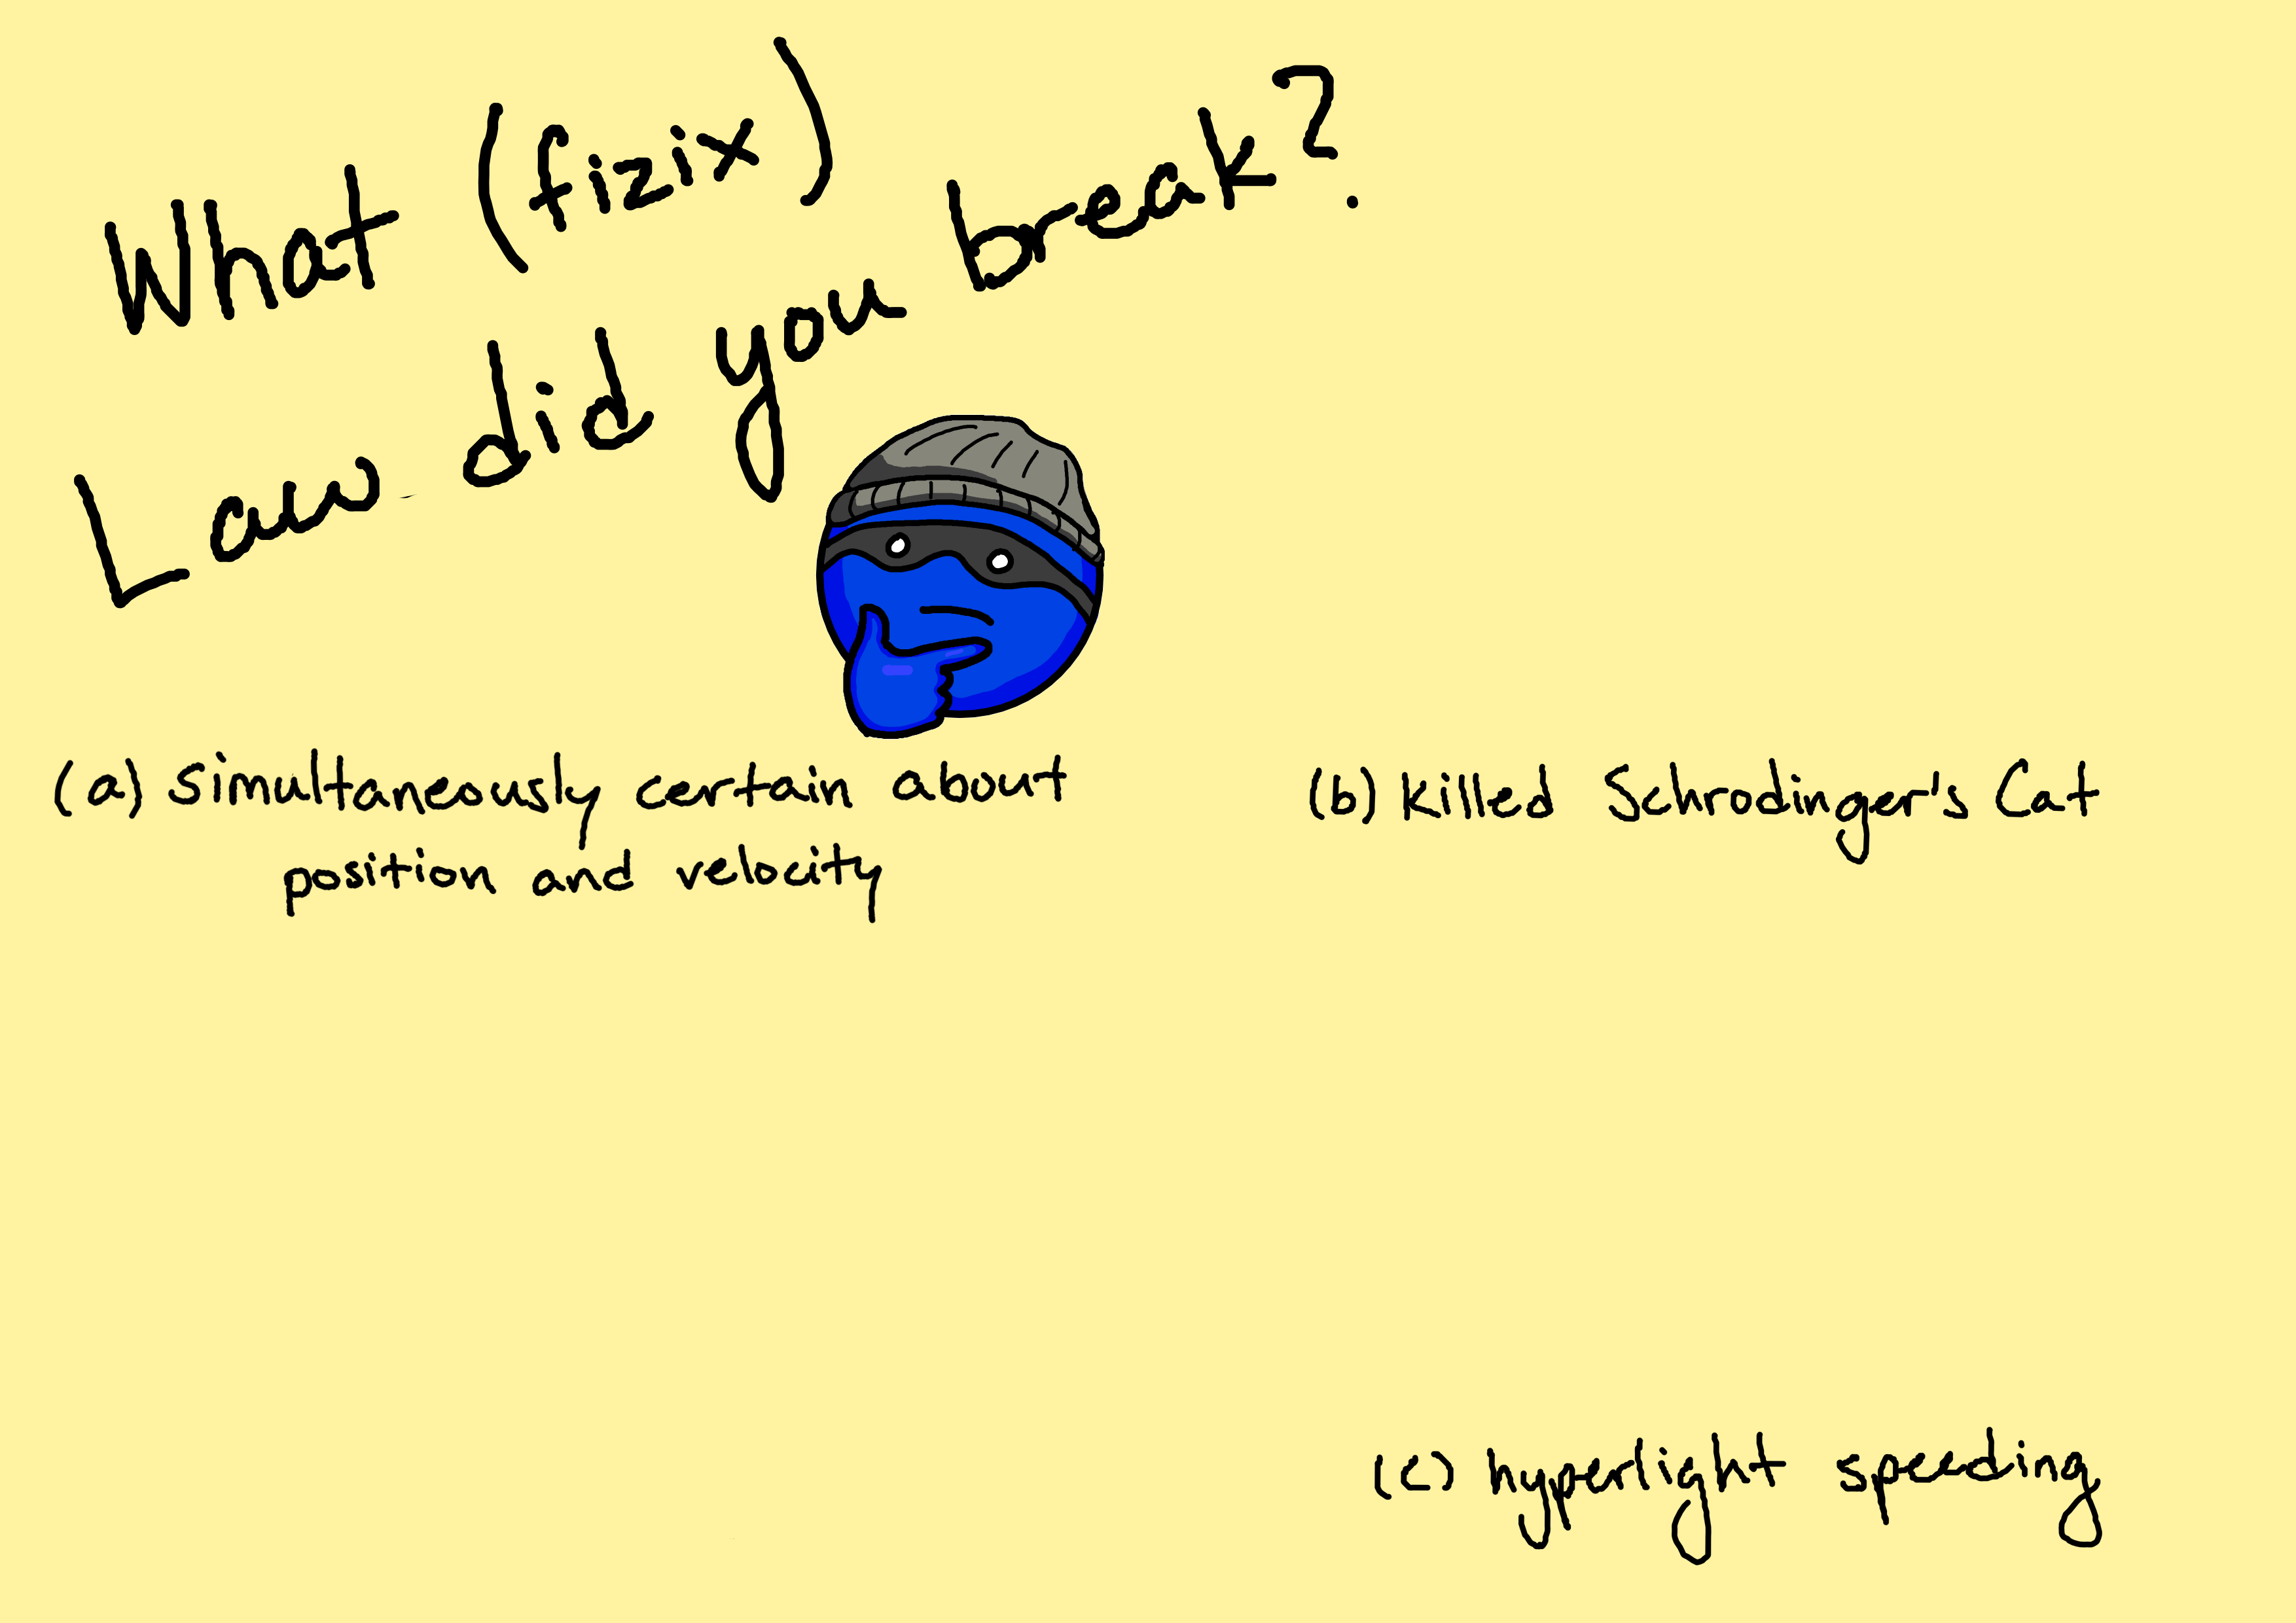 What (fizix)
Law did you break?
(a) Simultaneously certain about
position and velocity
(b) Killed Schrodinger's Cat
(c) hyperlight speeding